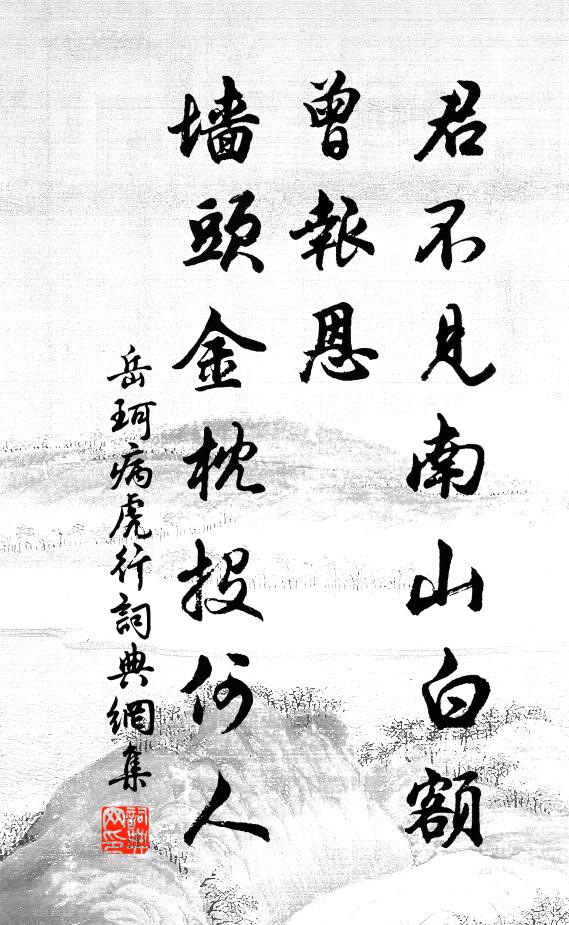 君不見南山白額
曾報恩
墻頭金枕投何人
岳珂病虎行詞典網集